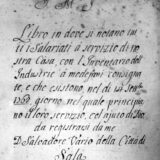 Libro in dove si notano tut
ti i Salariati à servizio di no
stra Casa, con l'Inventario dell'
Industrie à medesimi consigna
te, e che esistono nel dì
giorno nel quale principia
no il loro servizio, col ajuto di Dio
da registrarsi da me
D. Salvadore Vario della Città di
Sala